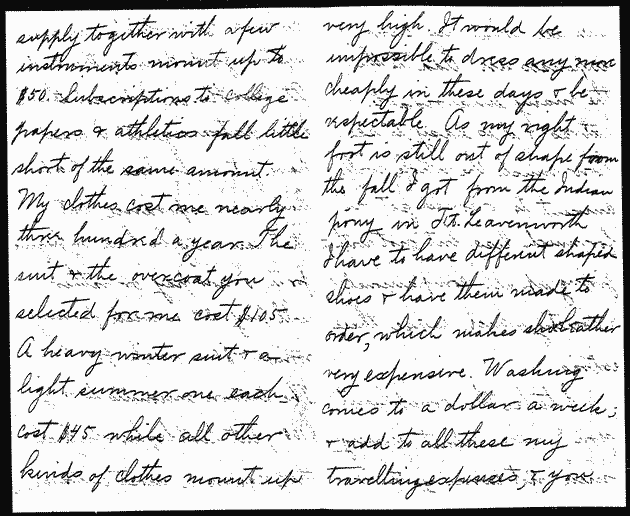 supply together with a few
instruments mount up to
$50. Subscriptions to college
papers & athletics fall little
short of the same amount.
My clothes cost me nearly
three hundred a year. The
suit & the overcoat you
selected for me cost $105
A heavy winter suit & a
light summer one each
cost $45 while all other
kinds of clothes mount up
very high. It would be
impossible to dress any more
cheaply in these days & be
respectable. As my right
foot is still out of shape from
the fall I got from the Indian
pony in Ft. Leavenworth
I have to have different shaped
shoes & have them made to
order, which makes rather
very expensive. Washing
comes to a dollar a week;
& add to all these my
travelling expenses, & you